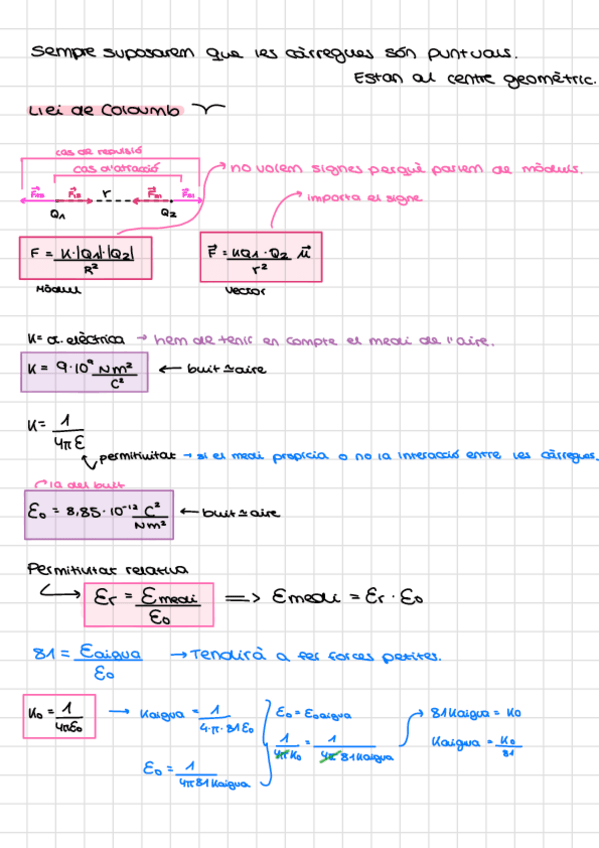 Sempre suposarem que les càrregues són puntuals.
Estan al centre geomètric.
Llei de Coloumb
cas de repulsió
cas d'atracció
no volem signes perquè parlem de mòduls.
r
Q1 Q2
importa el signe
F = K·|Q1|·|Q2| / R²
Mòdul
F⃗ = KQ1·Q2 / r² μ⃗
Vector
K = ct. elèctrica → hem de tenir en compte el medi de l'aire.
K = 9·10⁹ Nm² / C² ← buit ≃ aire
K = 1 / 4πε
permitivitat → si el medi propicia o no la interacció entre les càrregues.
la del buit
ε₀ = 8,85·10⁻¹² C² / Nm² ← buit ≃ aire
Permitivitat relativa
εr = εmedi / ε₀ => εmedi = εr · ε₀
81 = εaigua / ε₀ → Tendirà a fer forces petites.
K₀ = 1 / 4πε₀ → Kaigua = 1 / 4·π·81ε₀
ε₀ = 1 / 4π81Kaigua
ε₀ = ε₀aigua
1 / 4πK₀ = 1 / 4π81Kaigua
→ 81Kaigua = K₀
Kaigua = K₀ / 81